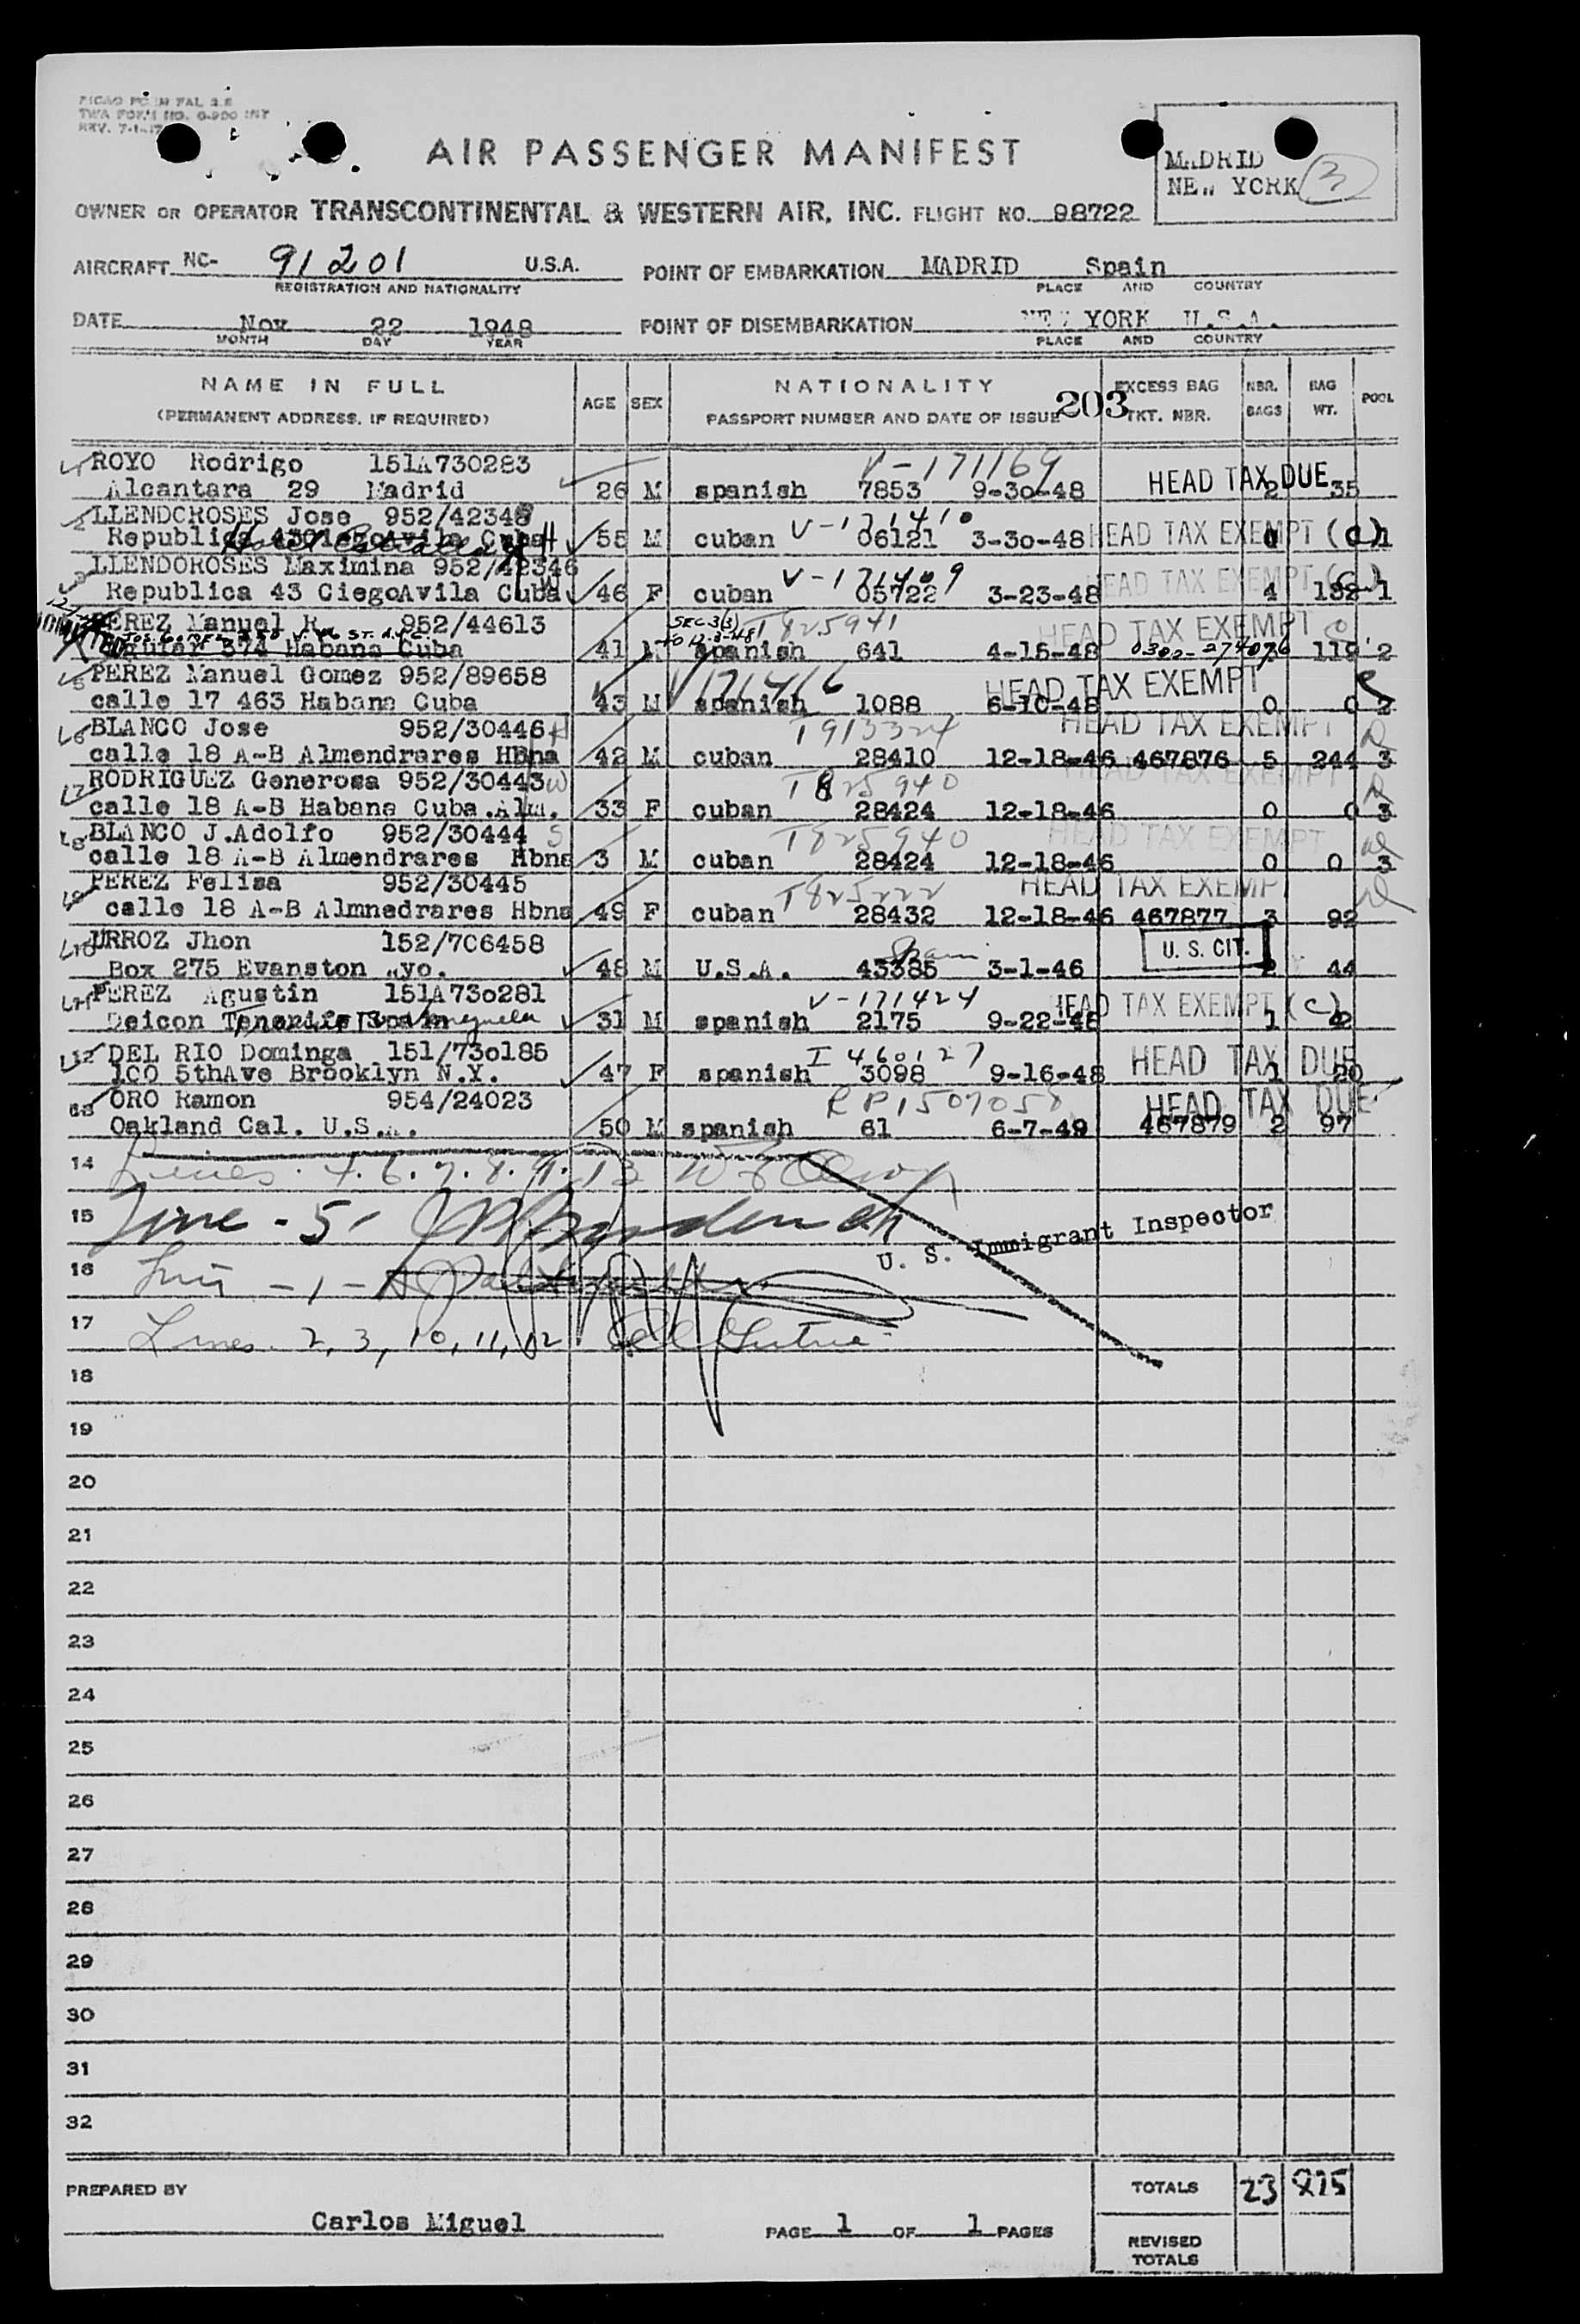 TWA FORM NO. 0-900 INT
AIR PASSENGER MANIFEST
MADRID
NEW YORK 3
OWNER OR OPERATOR TRANSCONTINENTAL & WESTERN AIR, INC. FLIGHT NO. 98722
AIRCRAFT NC- 91201 U.S.A. POINT OF EMBARKATION MADRID Spain
REGISTRATION AND NATIONALITY PLACE AND COUNTRY
DATE Nov 22 1948 POINT OF DISEMBARKATION NEW YORK U.S.A.
MONTH DAY YEAR PLACE AND COUNTRY
NAME IN FULL AGE SEX NATIONALITY EXCESS BAG NBR. BAG POOL
(PERMANENT ADDRESS, IF REQUIRED) PASSPORT NUMBER AND DATE OF ISSUE 203 TKT. NBR. BAGS WT.
1 ROYO Rodrigo 151A730283 V-171169
Alcantara 29 Madrid 26 M spanish 7853 9-30-48 HEAD TAX DUE 2 35
2 LLENDOROSES Jose 952/42348
Republica Cuba H 55 M cuban V-171410 06121 3-30-48 HEAD TAX EXEMPT (C) 1
3 LLENDOROSES Maximina 952/42346 V-171409
Republica 43 CiegoAvila Cuba W 46 F cuban 05722 3-23-48 HEAD TAX EXEMPT (C) 4 132 1
PEREZ Manuel R. 952/44613 SEC.3(3) T825941
Aguiar 574 Habana Cuba 41 M spanish 641 4-15-48 HEAD TAX EXEMPT 0302-274076 119 2
5 PEREZ Manuel Gomez 952/89658 V171416
calle 17 463 Habana Cuba 43 M spanish 1088 6-10-48 HEAD TAX EXEMPT 0 0 2
6 BLANCO Jose 952/30446 H T913324 HEAD TAX EXEMPT
calle 18 A-B Almendrares HBna 42 M cuban 28410 12-18-46 467876 5 244 3
7 RODRIGUEZ Generosa 952/30443 W T825940 HEAD TAX EXEMPT
calle 18 A-B Habana Cuba.Alm. 33 F cuban 28424 12-18-46 0 0 3
8 BLANCO J.Adolfo 952/30444 S T825940 HEAD TAX EXEMPT
calle 18 A-B Almendrares Hbna 3 M cuban 28424 12-18-46 0 0 3
9 PEREZ Felisa 952/30445 T825222 HEAD TAX EXEMPT
calle 18 A-B Almnedrares Hbna 49 F cuban 28432 12-18-46 467877 3 92
10 URROZ Jhon 152/706458 Spain U. S. CIT.
Box 275 Evanston Wyo. 48 M U.S.A. 43385 3-1-46 2 44
11 PEREZ Agustin 151A730281 V-171424 HEAD TAX EXEMPT (C)
Deicon Tenerife Spain Venezuela 31 M spanish 2175 9-22-48 1
12 DEL RIO Dominga 151/730185 I 460127 HEAD TAX DUE
100 5thAve Brooklyn N.Y. 47 F spanish 3098 9-16-48 1 20
13 ORO Ramon 954/24023 RP1507058 HEAD TAX DUE
Oakland Cal. U.S.A. 50 M spanish 61 6-7-49 467879 2 97
14 Lines. 4. 6. 7. 8. 9. 13
15 Line - 5 -
U. S. Immigrant Inspector
16 Line - 1 -
17 Lines. 2, 3, 10, 11, 12
18
19
20
21
22
23
24
25
26
27
28
29
30
31
32
PREPARED BY TOTALS 23 825
Carlos Miguel PAGE 1 OF 1 PAGES
REVISED
TOTALS